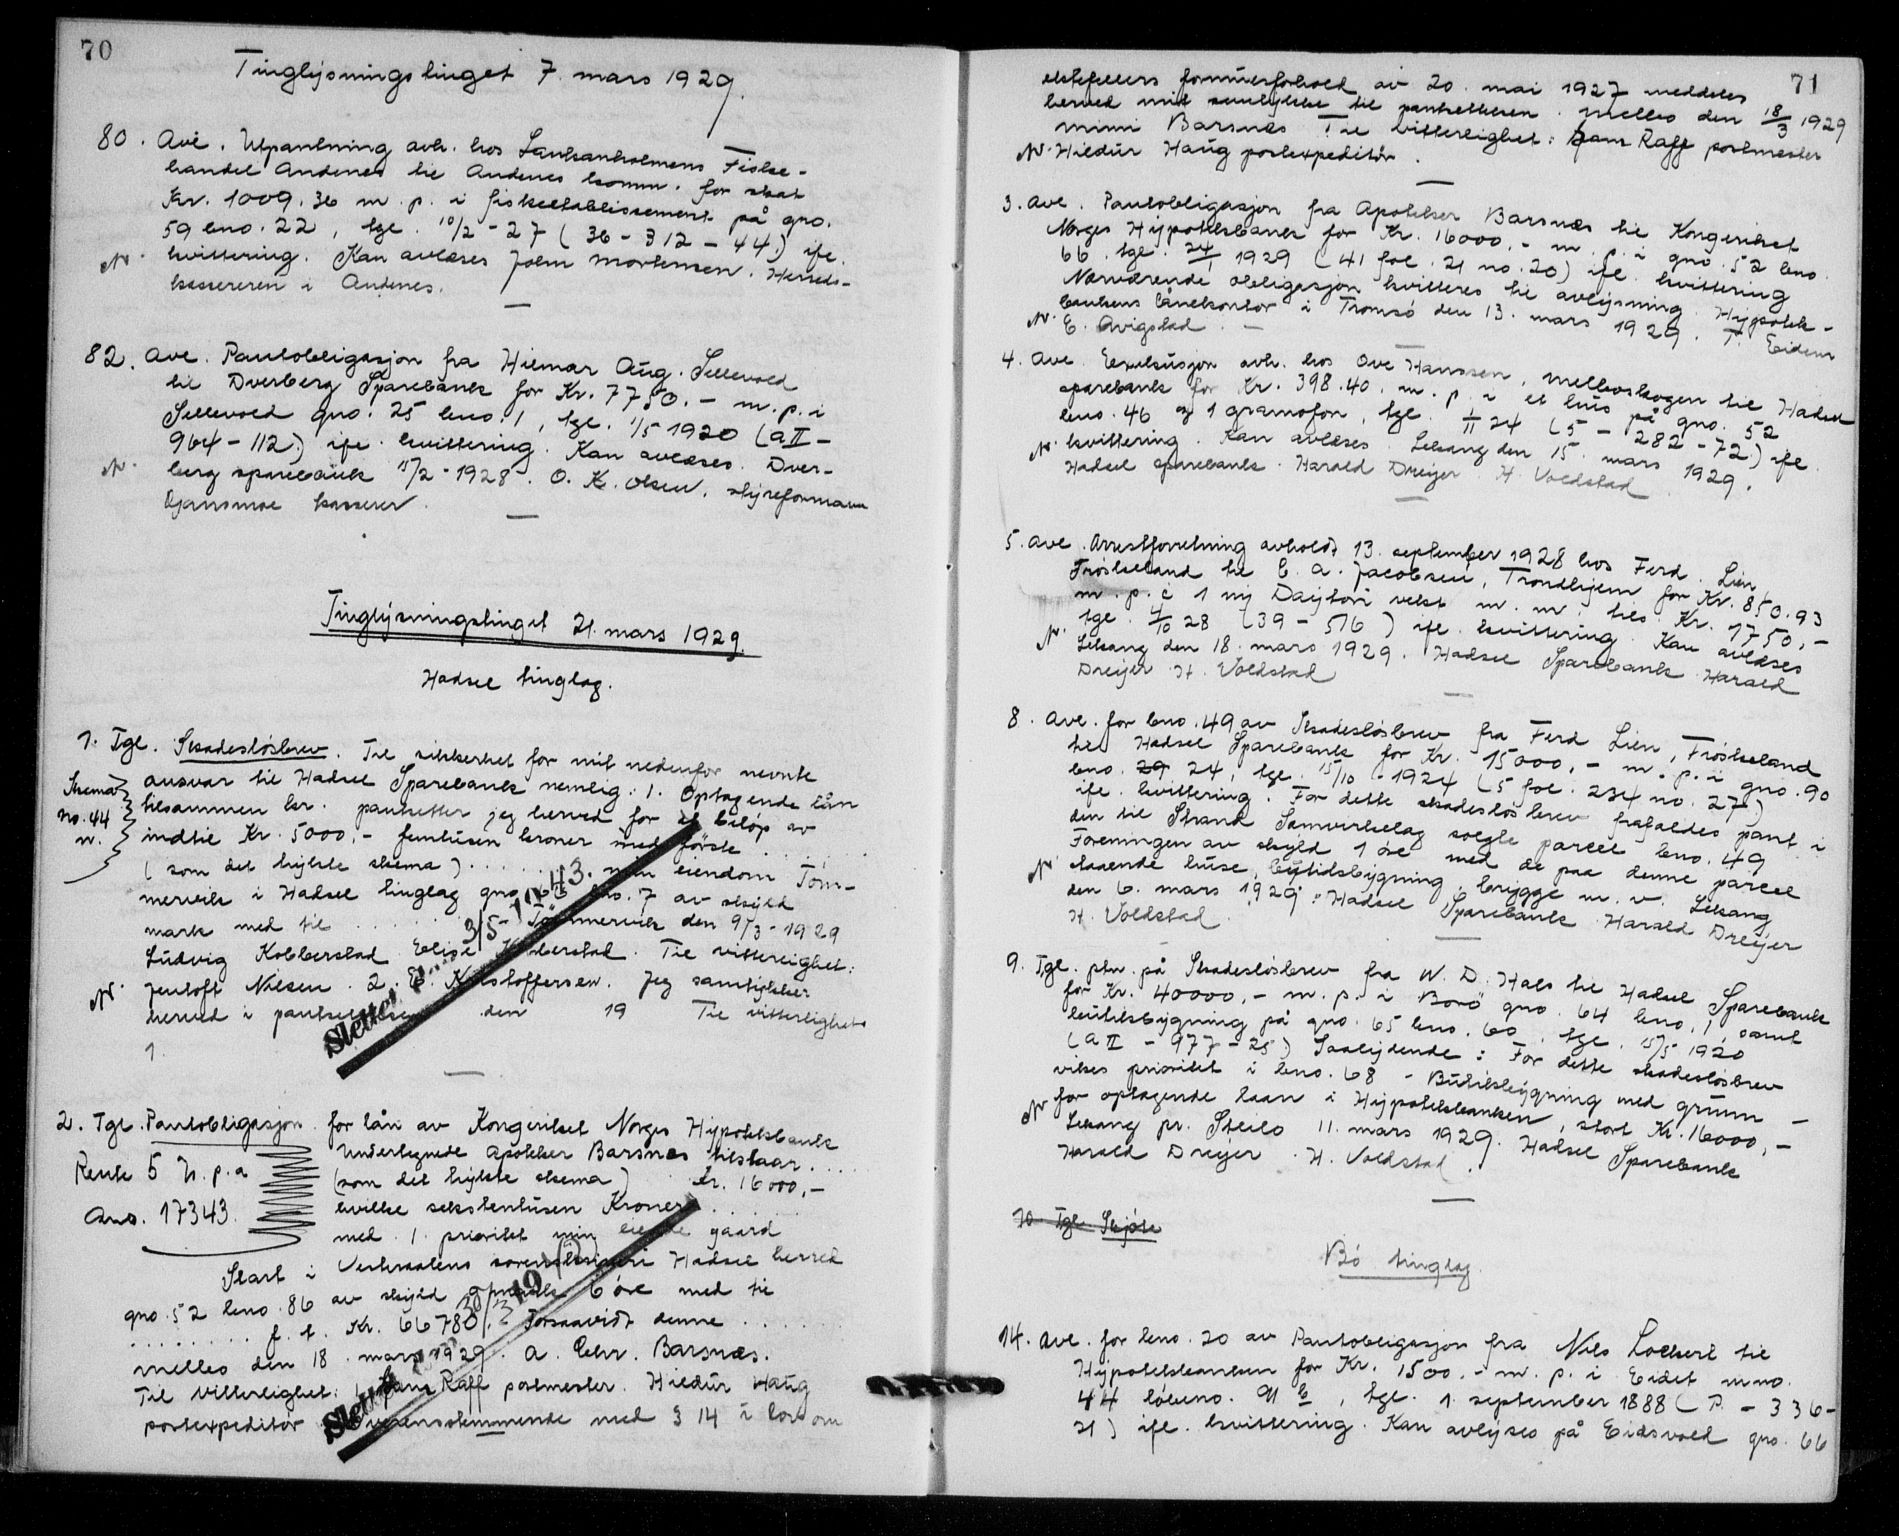 70
Tinglysningstinget 7. mars 1929.
80. Avl. Utpantning avh. hos Fiske-
handel Andenes til Andenes komm. for skat
Kr. 1009.36 m. p. i fisketablissement på gno.
59 bno. 22, tgl. 10/2-27 (36-312-44) ifl.
N. kvittering. Kan avlæses John Mortensen. Herreds-
kassereren i Andenes.
82. Avl. Pantobligasjon fra Hilmar Aug. Sellevold
til Dverberg Sparebank for Kr. 7750.- m. p. i
Sellevold gno. 25 bno. 1, tgl. 1/5 1920 (a II -
964-112) ifl. kvittering. Kan avlæses. Dver-
N. berg sparebank 15/2-1928. O. K. Olsen. styreformann
kasserer.
Tinglysningstinget 21. mars 1929.
Hadsel tinglag.
1. Tgl. Skadesløsbrev. Til sikkerhet for mit nedenfor nevnte
Skema ansvar til Hadsel Sparebank nemlig: 1. Optagende lån
no. 44 tilsammen kr. pantsetter jeg herved for et beløp av
n. indtil Kr. 5000,- femtusen kroner med første . . .
(som det trykte skema) . . . . . . min eiendom Tøm-
mervik i Hadsel tinglag gno. bno. 7 av skyld
mark med til . . . . . . Tømmervik den 9/3-1929
Ludvig Kobberstad Elise Kobberstad. Til vitterlighet:
N. Jentoft Nilsen. 2. E. Kristoffersen. Jeg samtykker
herved i pantsettelsen den 19 Til vitterlighet
1.
Slettet 3/5-1943.
2. Tgl. Pantobligasjon for lån av Kongeriket Norges Hypotekbank
Rente 5 % p. a Undertegnede Apoteker Barsnes tilstaar . . . .
(som det trykte skema) Kr. 16000,-
Ans. 17343 hvilke sekstentusen Kroner . . . . .
med 1. prioritet min eiende gaard
Start i Vesteraalens sorenskriveri Hadsel herred
gno. 52 bno. 86 av skyld mark 6 øre med til
. . . . . . . f. t. Kr. 66780,- Forsaavidt denne . . . . . .
Melbo den 18. mars 1929. A. Chr. Barsnes.
Til Vitterlighet: Hans Raff postmester. Hildur Haug
postexpeditør Overensstemmende med § 14 i lov om
Slettet
71
ektefellers formuesforhold av 20. mai 1927 meddeles
herved mit samtykke til pantsettelsen. Melbo den 18/3 1929
Mimi Barsnes Til vitterlighet: Hans Raff postmester
N. Hildur Haug postexpeditør.
3. Avl. Pantobligasjon fra Apoteker Barsnes til Kongeriket
Norges Hypotekbank for Kr. 16000,- m. p. i gno. 52 bno.
66 tgl. 24/1 1929 (41 fol. 21 no. 20) ifl. kvittering
Nærværende obligasjon kvitteres til avlysning. Hypotek-
N. bankens lånekontor i Tromsø den 13. mars 1929. T. Eidem
E. Avigstad.
4. Avl. Exekusjon avh. hos Ove Hanssen, Melboskogen til Hadsel
sparebank for Kr. 398.40. m. p. i et hus på gno. 52
bno. 46 og 1 gramofon, tgl. 1/11 24 (5-282-72) ifl.
N. kvittering. Kan avlæses Leksang den 15. mars 1929.
Hadsel sparebank. Harald Dreyer H. Voldstad
5. Avl. Arrestforretning avholdt 13. september 1928 hos Ferd. Lien,
Frøskeland til E. A. Jacobsen, Trondhjem for Kr. 850.93
m. p. i 1 ny Dayton vekt m. m. til Kr. 1750,-
tgl. 4/10 28 (39-516) ifl. kvittering. Kan avlæses
N. Leksang den 18. mars 1929. Hadsel Sparebank Harald
Dreyer H. Voldstad
8. Avl. for bno. 49 av Skadesløsbrev fra Ferd Lien, Frøskeland
til Hadsel Sparebank for Kr. 15000,- m. p. i gno. 90
bno. 29 24, tgl. 15/10-1924 (5 fol. 234 no. 27)
ifl. kvittering. For dette skadesløsbrev frafaldes pant i
den til Strand Samvirkelag solgte parcel bno. 49
Foreningen av skyld 1 øre med de paa denne parcel
N. staaende huse, brygge m. v. Leksang
den 6. mars 1929. Hadsel Sparebank Harald Dreyer
H. Voldstad
9. Tgl. ptn. på Skadesløsbrev fra W. D. Hals til Hadsel Sparebank
for Kr. 40000,- m. p. i Borø gno. 64 bno. 1, samt
butiksbygning på gno. 65 bno. 60, tgl. 15/5 1920
(a II - 977-25) Saalydende: For dette skadesløsbrev
vikes prioritet i bno. 68 - Butiksbygning med grunn -
for optagende laan i Hypotekbanken, stort Kr. 16000,-
N. Leksang pr. Steilo 11. mars 1929. Hadsel Sparebank
Harald Dreyer. H. Voldstad.
10. Tgl. Skjøte
Bø tinglag.
14. Avl. for bno. 20 av Pantobligasjon fra Nils Lockert til
Hypotekbanken for Kr. 1500.- m. p. i Eidet mno.
44 løbeno. 91 b, tgl. 1. september 1888 (P. - 336-
21) ifl. kvittering. Kan avlyses på Eidsvold gno. 66